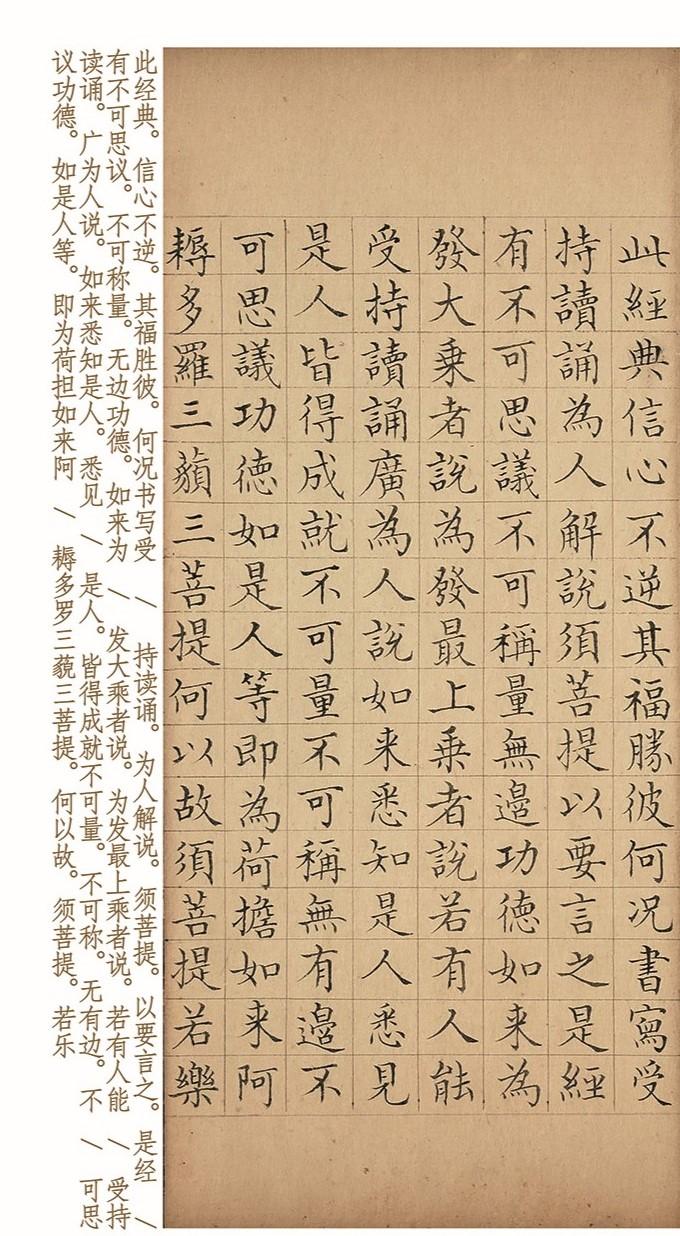 此經典信心不逆其福勝彼何况書寫受
持讀誦為人解說須菩提以要言之是經
有不可思議不可稱量無邉功德如来為
發大乗者說為發最上乗者說若有人能
受持讀誦廣為人說如来悉知是人悉見
是人皆得成就不可量不可稱無有邉不
可思議功德如是人等即為荷擔如来阿
耨多羅三藐三菩提何以故須菩提若樂
此经典。信心不逆。其福胜彼。何况书写受 / 持读诵。为人解说。须菩提。以要言之。是经 /
有不可思议。不可称量。无边功德。如来为 / 发大乘者说。为发最上乘者说。若有人能 / 受持
读诵。广为人说。如来悉知是人。悉见 / 是人。皆得成就不可量。不可称。无有边。不 / 可思
议功德。如是人等。即为荷担如来阿 / 耨多罗三藐三菩提。何以故。须菩提。若乐